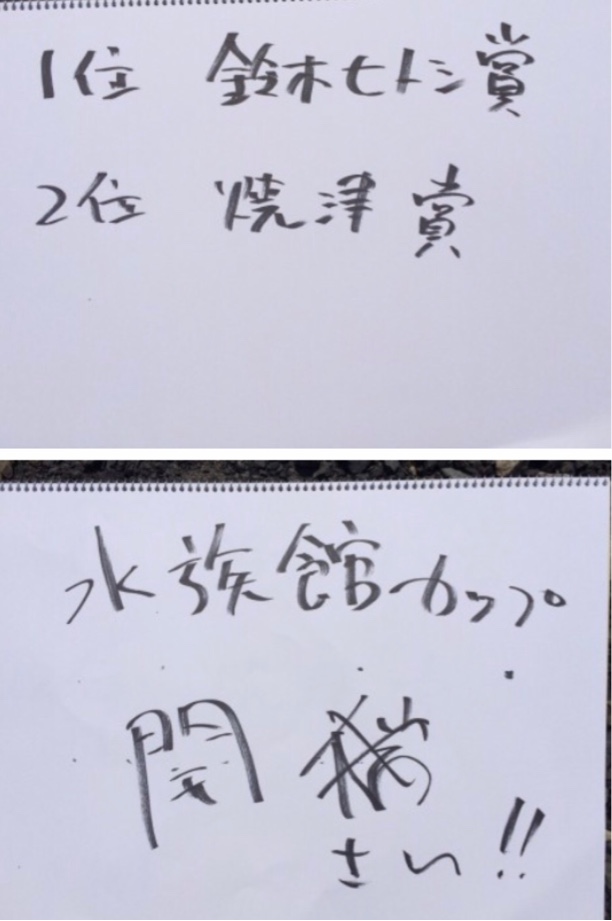 1位 鈴木ヒトシ賞
2位 焼津賞
水族館カップ
開
さい!!